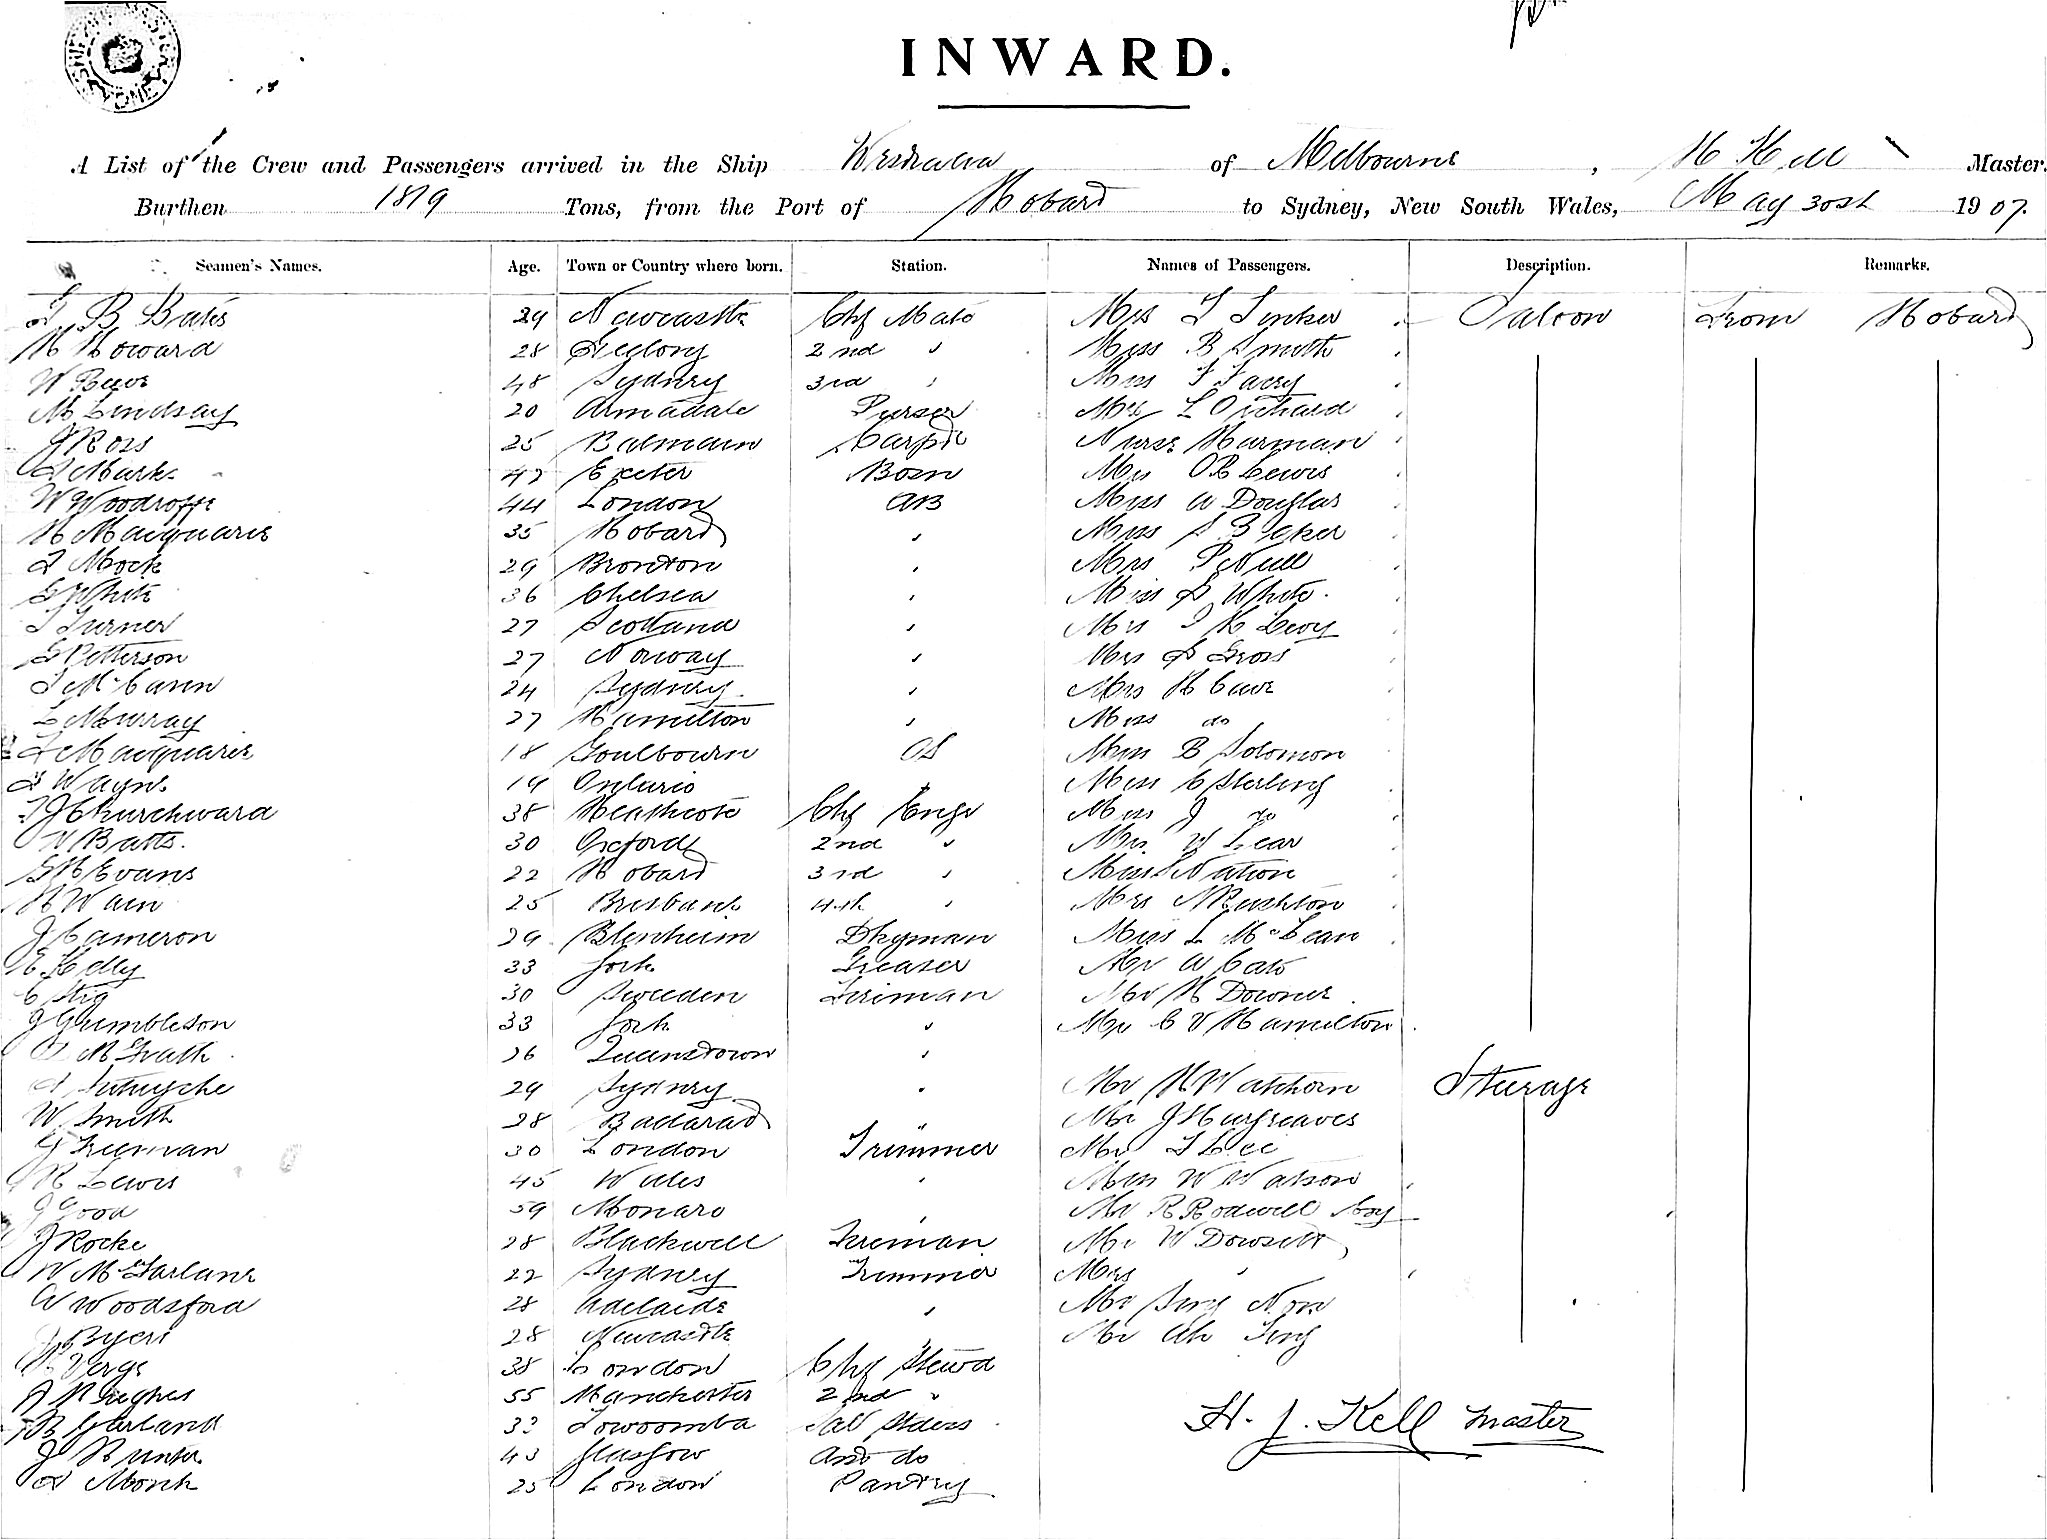 INWARD.
A List of the Crew and Passengers arrived in the Ship Westralia of Melbourne, H Kell Master.
Burthen 1819 Tons, from the Port of Hobart to Sydney, New South Wales, May 30st 1907.
Seamen's Names. Age. Town or Country where born. Station. Names of Passengers. Description. Remarks.
B Bates 29 Newcastle Chf Mate Mrs T Tinker Saloon From Hobart
H Howard 28 Geelong 2nd " Miss B Smith
W Reeve 48 Sydney 3rd " Miss F Facey
M Lindsay 20 Armadale Purser Mrs L Orchard
J Ross 25 Balmain Carptr Nurse Harman
Mark 47 Exeter Bosn Mrs Lewis
W Woodroffe 44 London AB Miss A Douglas
H Macquarie 35 Hobart " Miss
Mock 29 " Mrs P Neill
G White 36 Chelsea " Miss White
T Turner 27 Scotland " Mrs Levy
Petterson 27 Norway " Mrs Gross
McCann 24 Sydney " Mrs H Cave
L Murray 27 Hamilton " Miss do
Macquarie 18 Goulbourn OS Miss B Solomon
Wayne 19 Ontario Miss C Sterling
Churchward 38 Heathcote Chf Engr Miss J do
W Batts. 30 Oxford 2nd " Mrs W Lear
G H Evans 22 Hobart 3rd " Miss Nation
H Wain 25 Brisbane 4th " Mrs Rushton
J Cameron 29 Blenheim Dkyman Miss L McLean
E Kelly 33 Cork Greaser Mr A Cato
C Stig 30 Sweeden Fireman Mr H Downer
J Grimbleson 33 Cork " Mr C V Hamilton
McGrath 26 Queenstown "
29 Sydney " Mr H Watchorn Steerage
W Smith 28 " Mr J Hargreaves
G Freeman 30 London Trimmer Mr T Lee
H Lewis 45 Wales " Miss W Watson
J Good 59 Monaro " Mr R Rodwell boy
J Roche 28 Blackwell Fireman Mr W Dowsett
W McFarlane 22 Sydney Trimmer Mrs "
A Woodsford 28 Adelaide " Mr
J Byers 28 Newcastle Mr Ah
Verge 38 London Chf Stewd
Hughes 55 Manchester 2nd "
Garland 33 Towoomba Sal Stders H. J. Kell master
J Hunter 43 Glasgow And do
A Monk 25 London Pantry